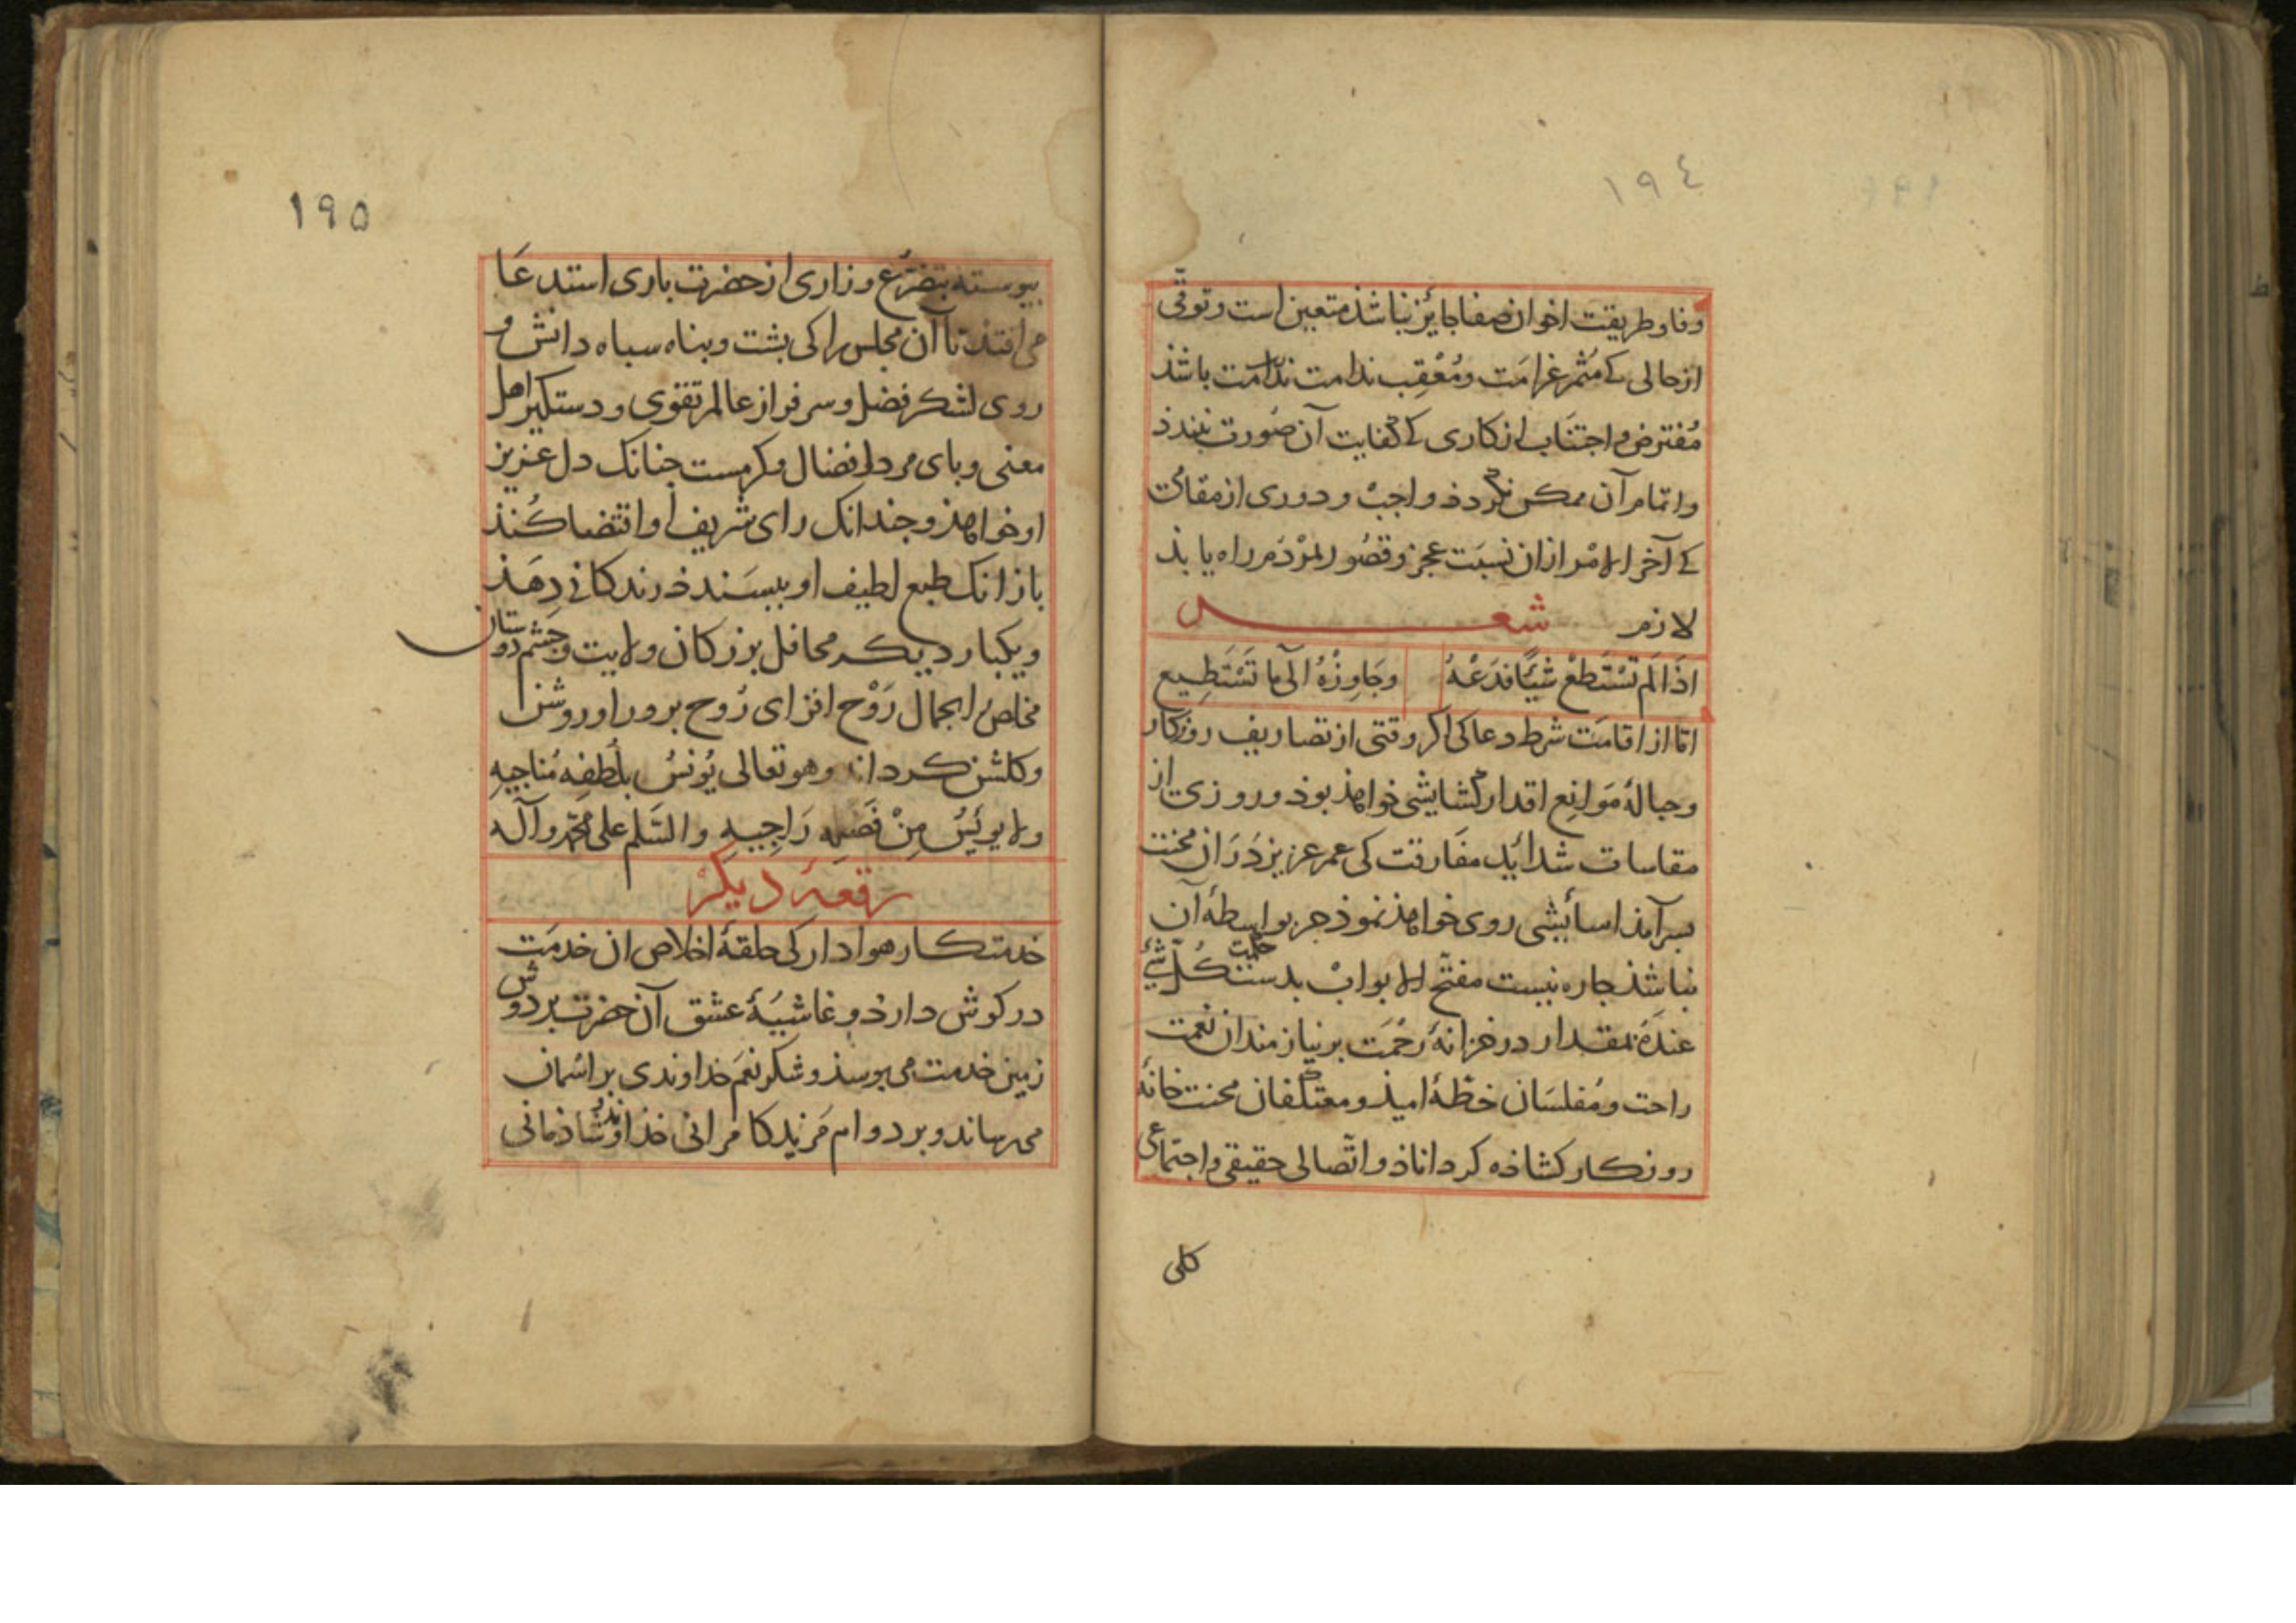 ١٩٤
وفا و طریقت اخوان صفا جایز نباشذ متعین است و توقّی
از حالی کے مُثمر غرامَت و مُعْقِب ندامت باشذ
مُفترض و اجتناب از کاری کے کفایت آن صُورت نبندذ
و اتمام آن ممکن نگردذ واجبْ و دوری از مقامی
کے آخر الامْر ازان نسبَت عجز و قصُور لمرْدَم راه یابذ
لازم شعــــر
اذَا لَم تَسْتَطعْ شیْأً فَدَعْهُ وجَاوِزْهُ الَی ما تَسْتَطِیع
امّا از اقامَت شرط دعا کی اگر وقتی از تصاریف روزکار
و حبالهٔ مَوانِع اقدار کشایشی خواهذ بوذ و روزی از
مقاسات شدائد مفارقت کی عمر عزیز دَرَان محنت
بسر آمذ اسائیشی روی خواهذ نموذ جز بواسطهٔ آن
نباشذ جاره نیست مفتّح الابوابْ بدست حکمت کُلّ شیْءٍ
عندَهُ بمقدار در خزانهٔ رحْمَت بر نیازمندان نعمت
راحت و مُفلسَان خطّهٔ امیذ و معتکفان محنت خانهٔ
روزکار کشاذه کرداناذ و اتّصالی حقیقی و اجتماعی
کلی
١٩٥
بیوسته بتضرّع و زاری از حضرت باری استدعَا
می افتذ تا آن مجلس را کی بشت و بناه سباه دانش و
روی لشکر فضل و سرفراز عالم تقوی و دستکیر اهل
معنی و بای مرد افضال و کرمست جنانک دل عزیز
او خواهذ و جندانک رای شریف او اقتضا کُنذ
بازانک طبع لطیف او ببسَندذ زندکانی دِهَذ
و یکبار دیکر محافل بزرکان ولایت و جشم دوستان
مخلص را بجمال رَوْح افزای رُوح برور او روشن
و کلشن کرداند و هو تعالی یُونسُ بلُطفِه مُناجیهِ
و لا یویَئِسُ مِنْ فَضلِه رَاجِیهِ والسَّلم علی محمّد و آله
رقعهٔ دیکرْ
خدمتکار هوادار کی حلقهٔ اخلاص ان خدمَت
در کوش دارذ و غاشیَهٔ عشق آن حضرت بر دوش
زمین خدمت می بوسذ و شکر نعَم خداوندی بر اسْمان
می رساند و بر دوام مَزید کامرانی خذاوند شاذمانی